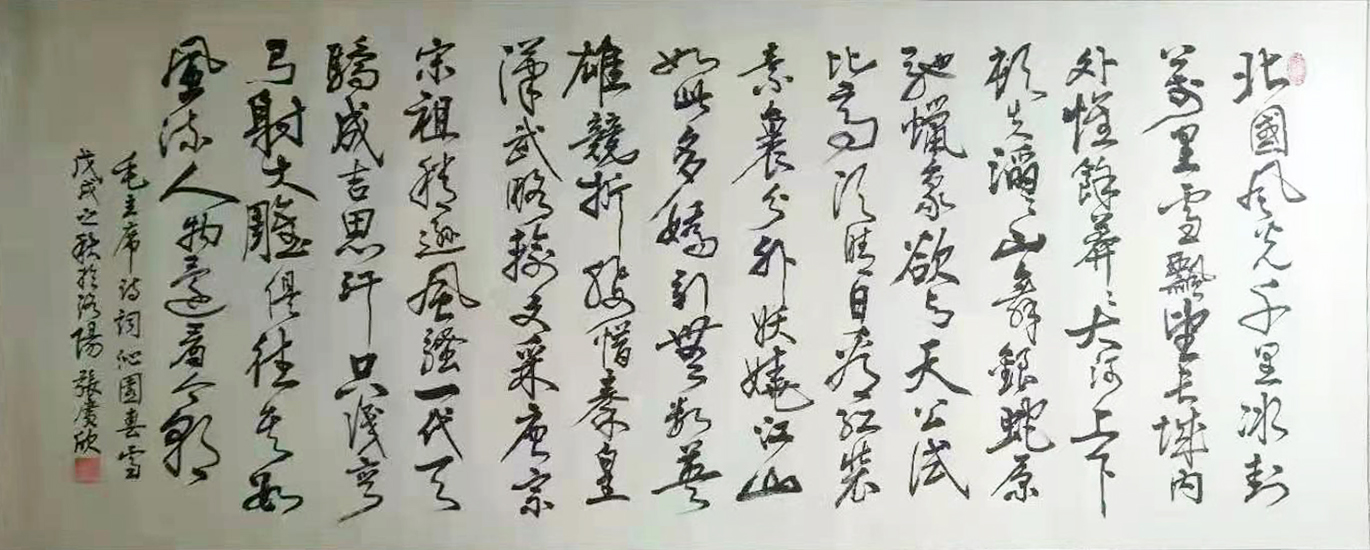 北國风光千里冰封
萬里雪飄望长城内
外惟餘莽々大河上下
顿失滔々山舞銀蛇原
驰蜡象欲与天公试
比高须晴日看红装
素裹分外妖娆江山
如此多嬌引無数英
雄競折腰惜秦皇
漢武略输文采唐宗
宋祖稍遜風騷一代天
驕成吉思汗只識彎
弓射大雕俱往矣数
風流人物還看今朝
毛主席詩詞沁園春雪
戊戌之秋於洛陽 張廣欣